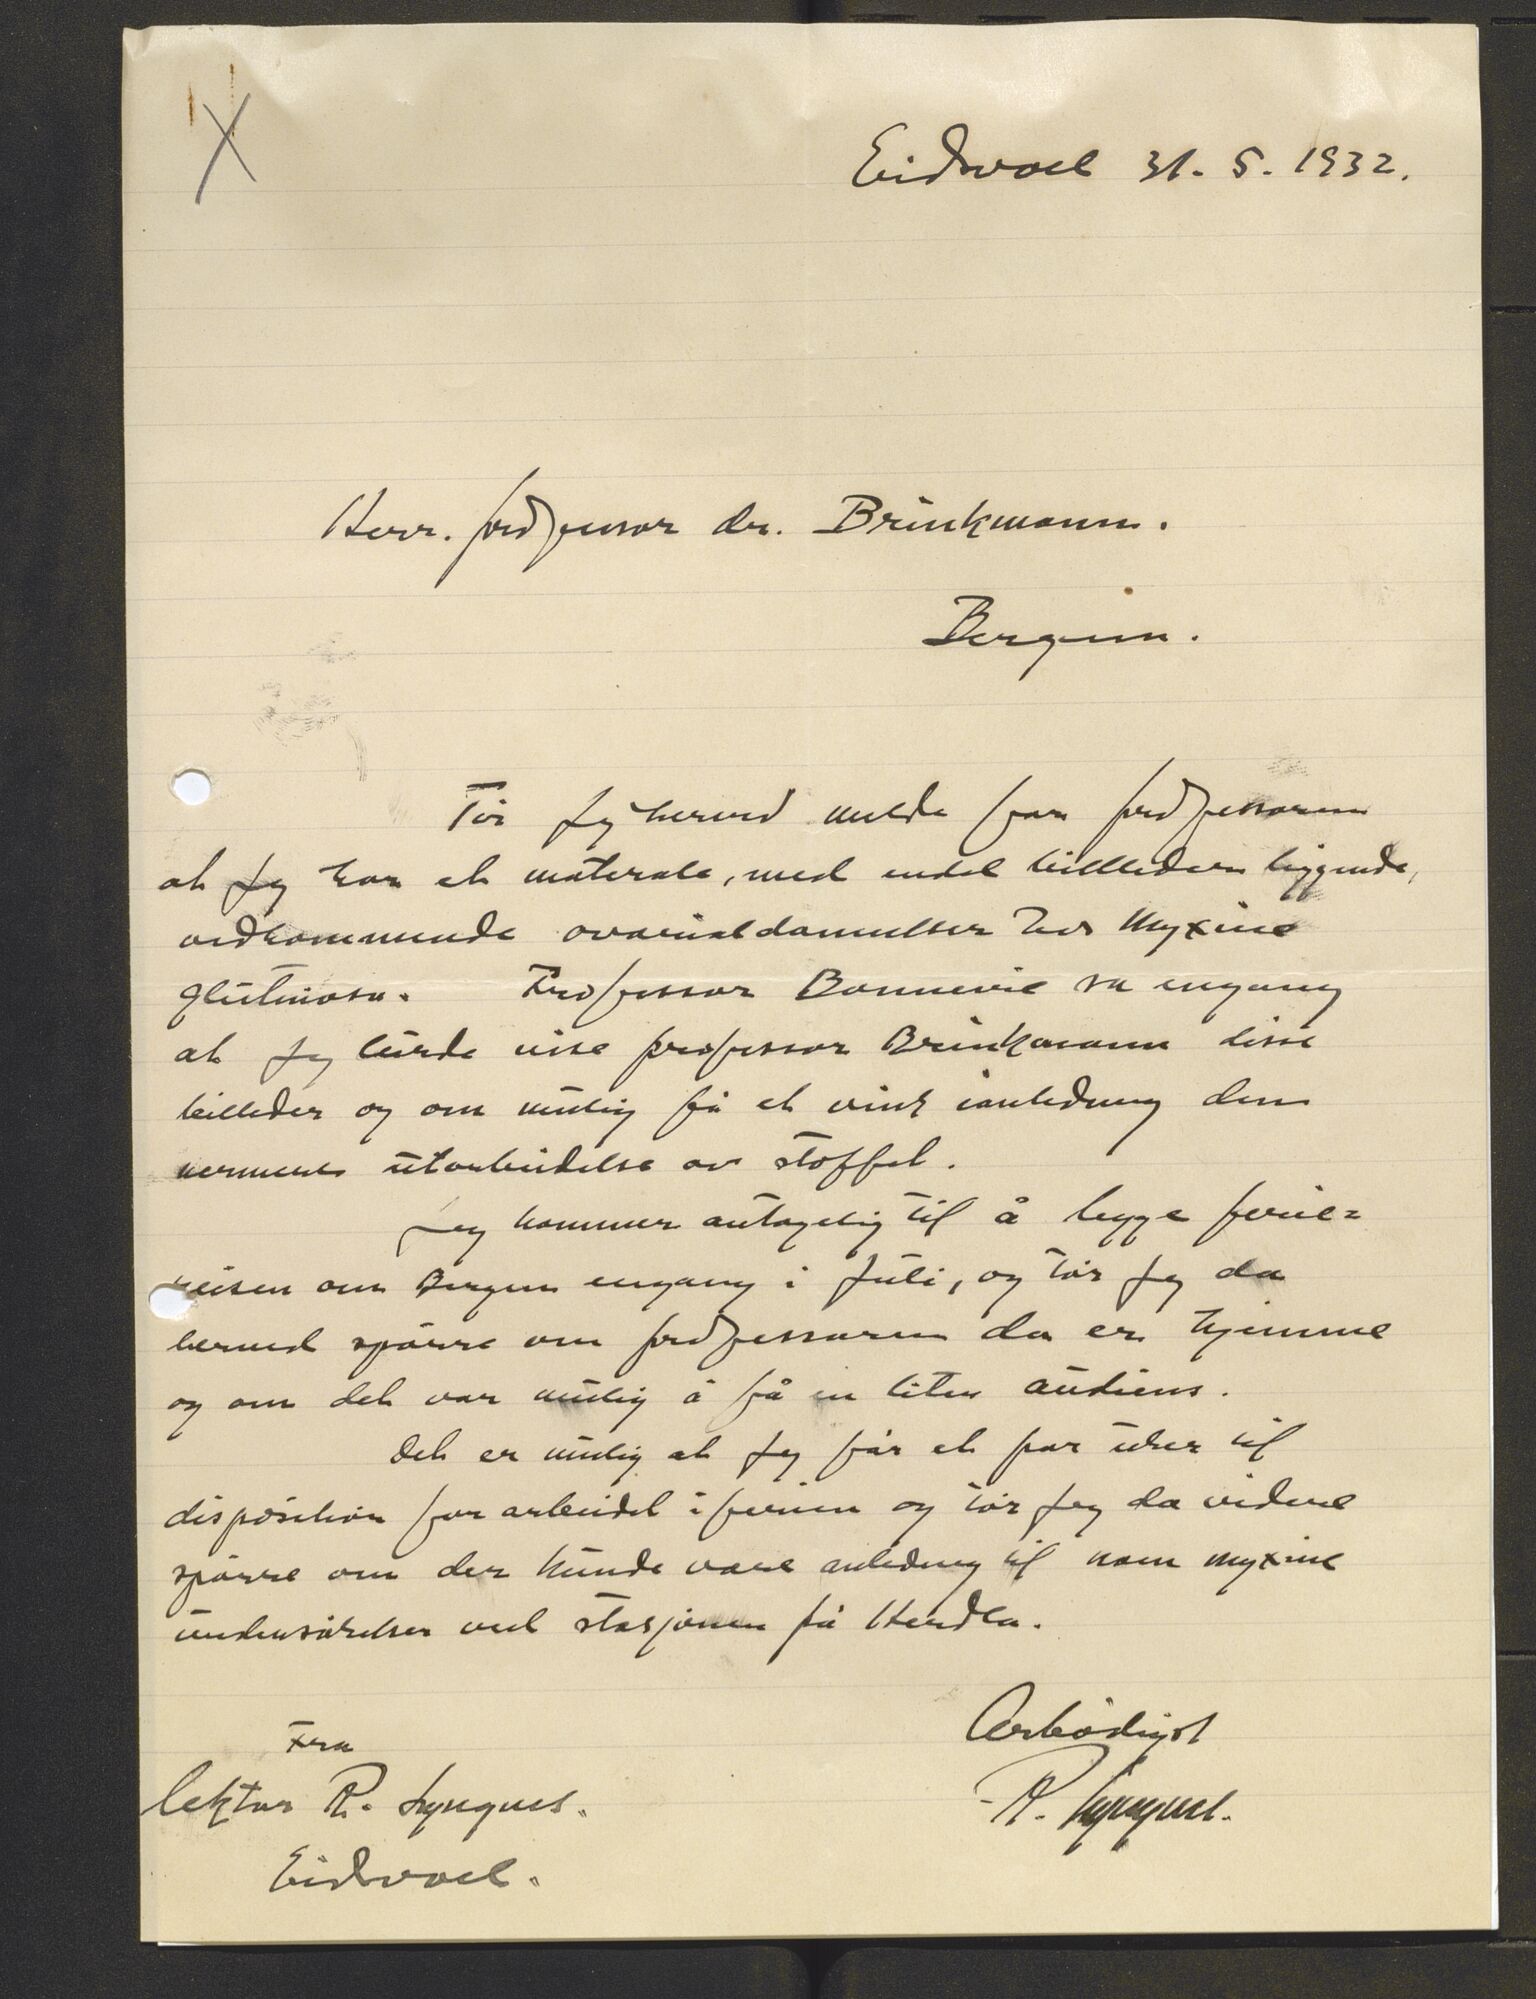 X
Eidsvoll 31. 5. 1932.
Herr. professor dr. Brinkmann.
Bergen.
Tør jeg herved melde fra professoren
at jeg har et materale, med endel billeder liggende,
vedkommende ovarialdannelser hos Myxine
glutinosa. Professor Bonnevie sa engang
at jeg burde vise professor Brinkmann disse
billeder og om mulig få et vink ianledning den
nermere utarbeidelse av stoffet.
Jeg kommer antagelig til å legge ferie=
reisen om Bergen engang i juli, og tør jeg da
herved spørre om professoren da er hjemme
og om det var mulig å få en liten audiens.
Det er mulig at jeg får et par uker til
disposition for arbeidet i ferien og tør jeg da videre
spørre om der kunde være anledning til noen myxine
undersøkelser ved stasjonen på Herdla.
Ærbødigst
R.
Fra
lektor R.
Eidsvoll.